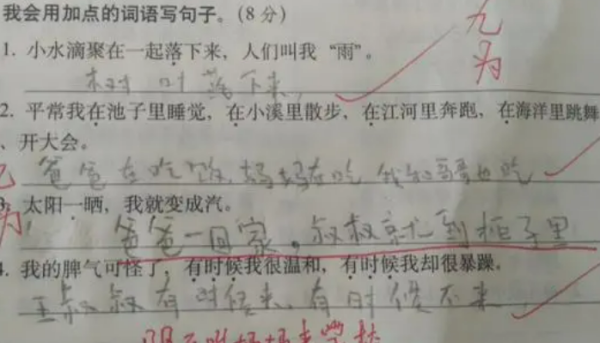 我会用加点的词语写句子。(8分)
1. 小水滴聚在一起落下来，人们叫我“雨”。
树叶落下来,
九
为
2. 平常我在池子里睡觉，在小溪里散步，在江河里奔跑，在海洋里跳舞
、开大会。
爸爸在吃饭，妈妈在吃 我和哥哥也吃
为
3. 太阳一晒，我就变成汽。
爸爸一回家，叔叔就到柜子里
4. 我的脾气可怪了，有时候我很温和，有时候我却很暴躁。
王叔叔有时候来，有时候不来